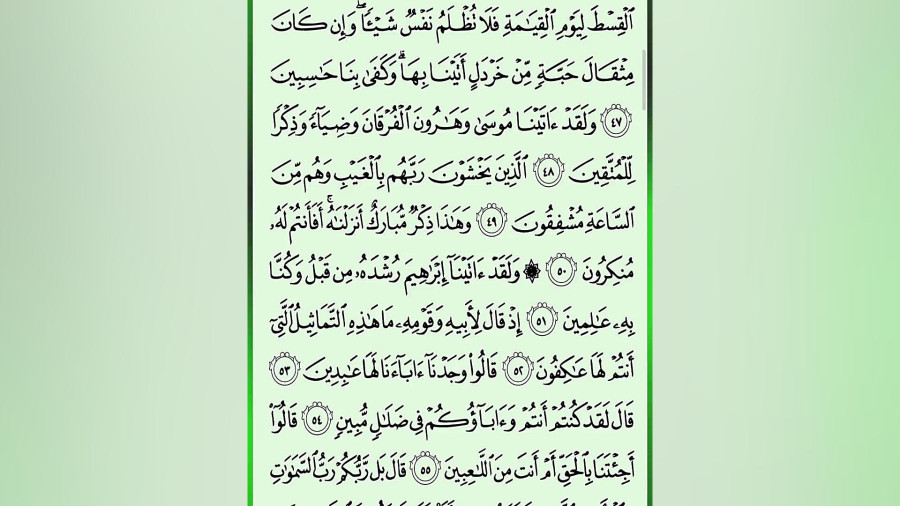 ٱلْقِسْطَ لِيَوْمِ ٱلْقِيَٰمَةِ فَلَا تُظْلَمُ نَفْسٌ شَيْـًٔا ۖ وَإِن كَانَ
مِثْقَالَ حَبَّةٍ مِّنْ خَرْدَلٍ أَتَيْنَا بِهَا ۗ وَكَفَىٰ بِنَا حَٰسِبِينَ
٤٧ وَلَقَدْ ءَاتَيْنَا مُوسَىٰ وَهَٰرُونَ ٱلْفُرْقَانَ وَضِيَآءً وَذِكْرًا
لِّلْمُتَّقِينَ ٤٨ ٱلَّذِينَ يَخْشَوْنَ رَبَّهُم بِٱلْغَيْبِ وَهُم مِّنَ
ٱلسَّاعَةِ مُشْفِقُونَ ٤٩ وَهَٰذَا ذِكْرٌ مُّبَارَكٌ أَنزَلْنَٰهُ ۚ أَفَأَنتُمْ لَهُۥ
مُنكِرُونَ ٥٠ ۞ وَلَقَدْ ءَاتَيْنَآ إِبْرَٰهِيمَ رُشْدَهُۥ مِن قَبْلُ وَكُنَّا
بِهِۦ عَٰلِمِينَ ٥١ إِذْ قَالَ لِأَبِيهِ وَقَوْمِهِۦ مَا هَٰذِهِ ٱلتَّمَاثِيلُ ٱلَّتِىٓ
أَنتُمْ لَهَا عَٰكِفُونَ ٥٢ قَالُوا۟ وَجَدْنَآ ءَابَآءَنَا لَهَا عَٰبِدِينَ ٥٣
قَالَ لَقَدْ كُنتُمْ أَنتُمْ وَءَابَآؤُكُمْ فِى ضَلَٰلٍ مُّبِينٍ ٥٤ قَالُوٓا۟
أَجِئْتَنَا بِٱلْحَقِّ أَمْ أَنتَ مِنَ ٱللَّٰعِبِينَ ٥٥ قَالَ بَل رَّبُّكُمْ رَبُّ ٱلسَّمَٰوَٰتِ